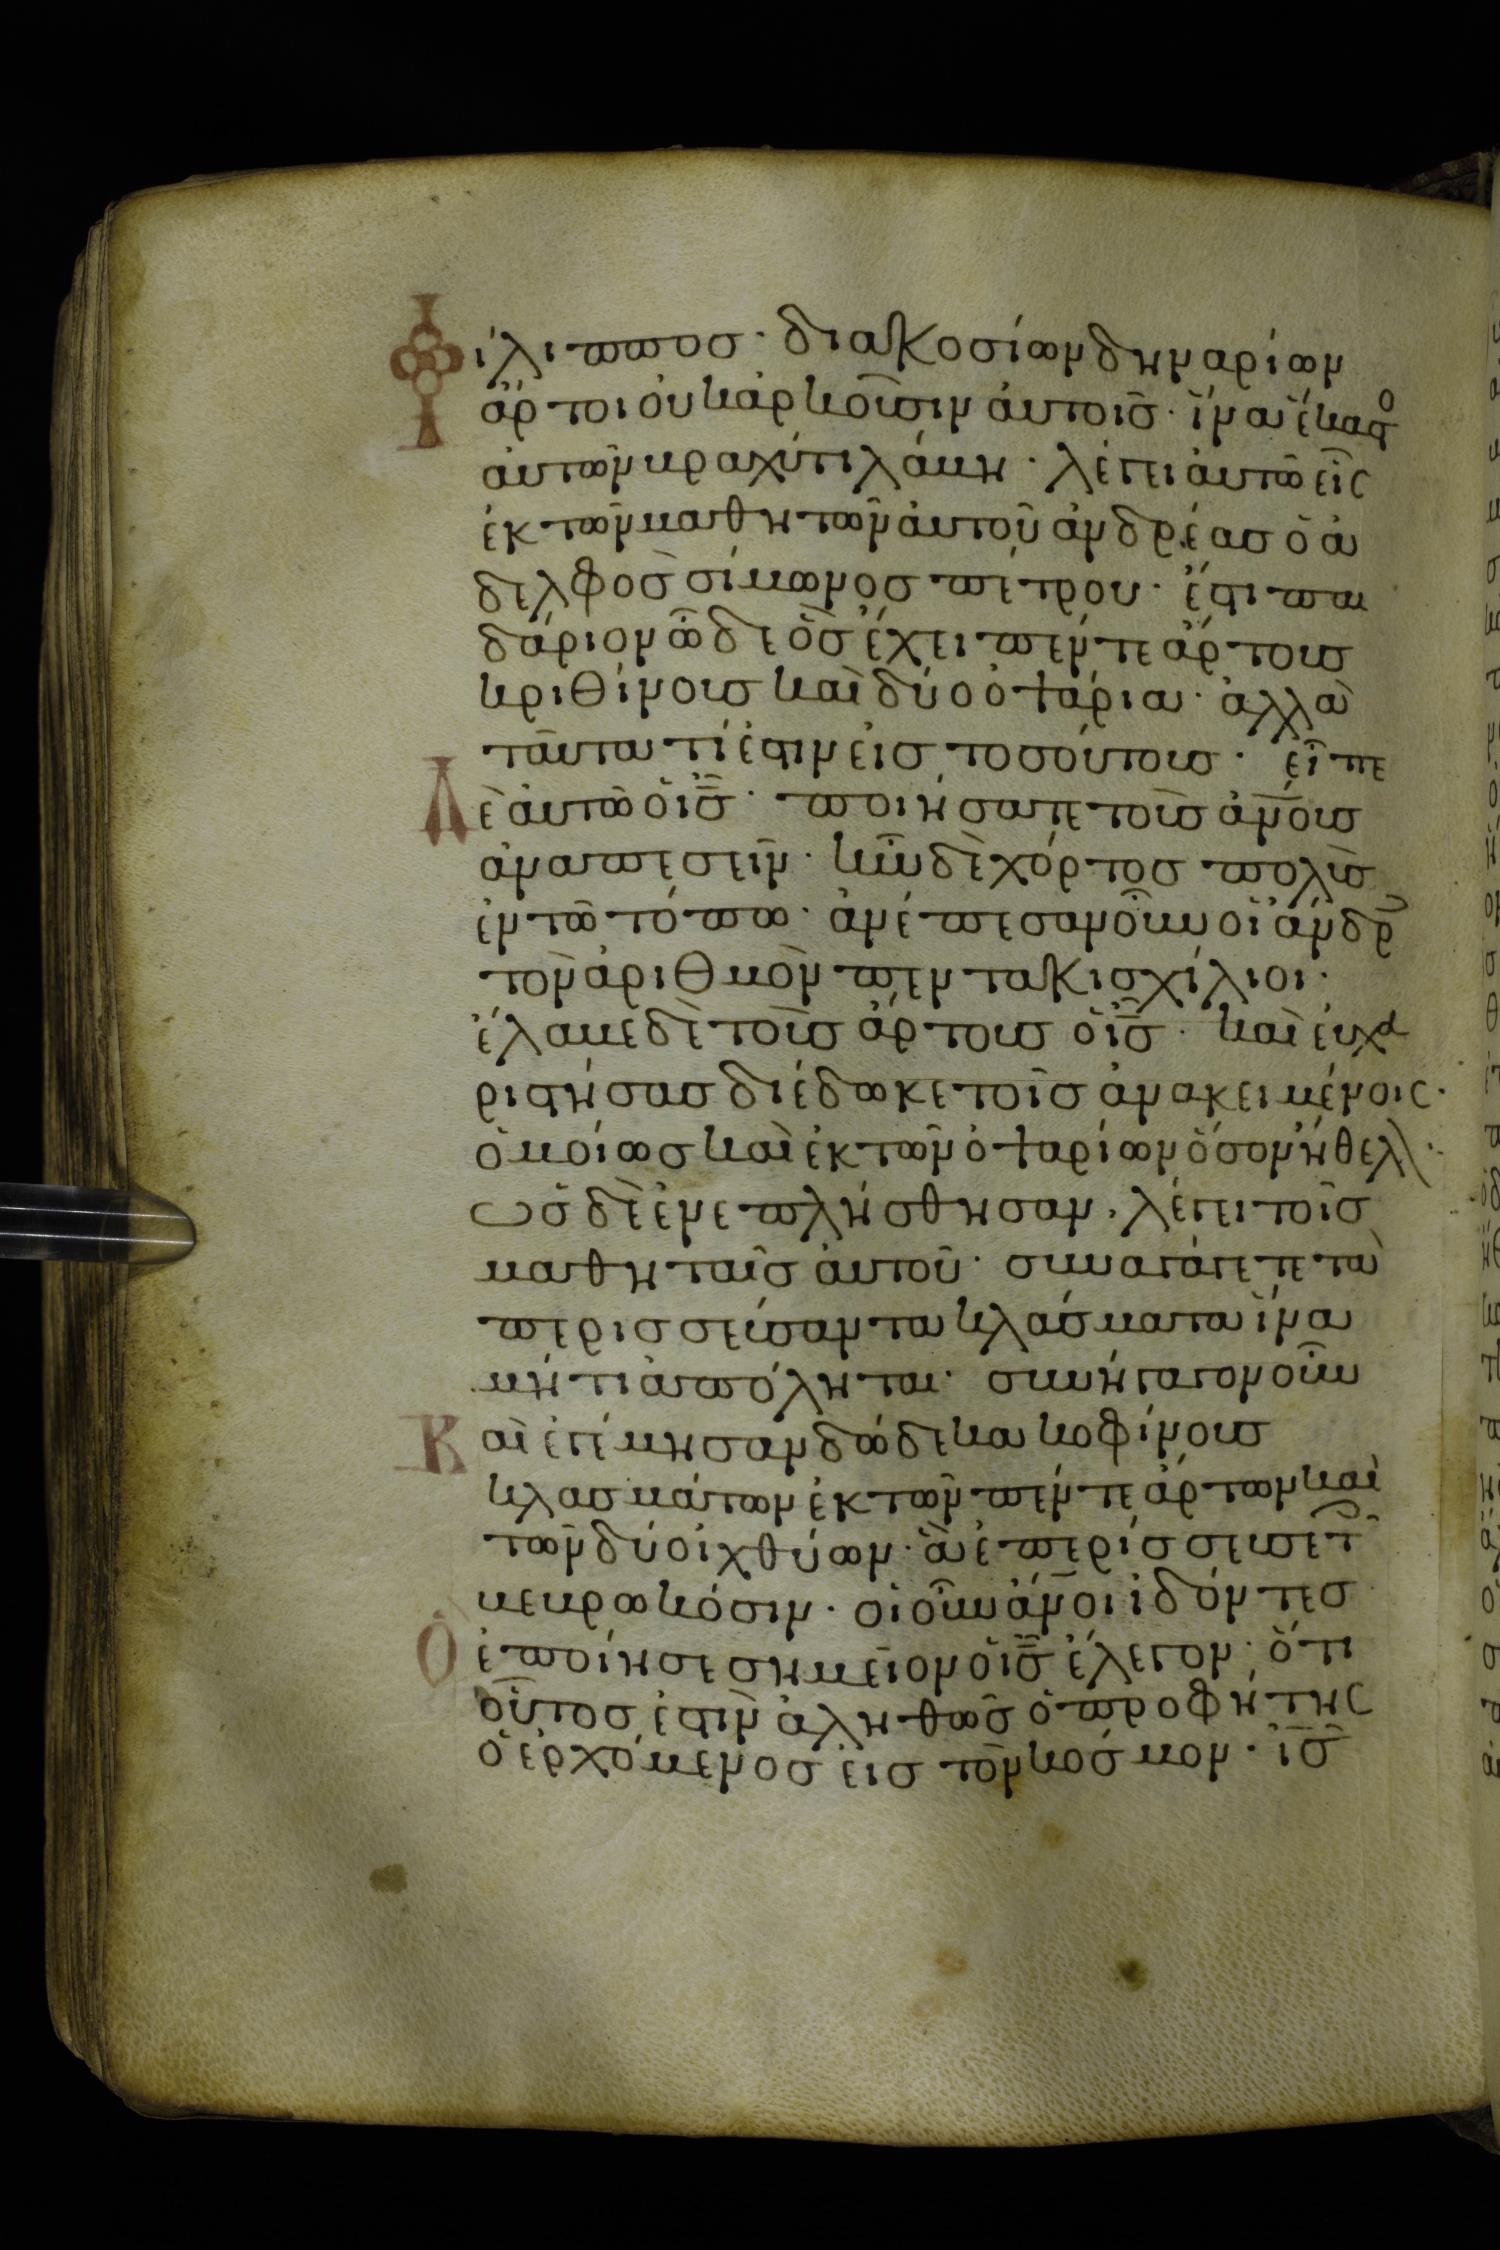 Φίλιππος· διακοσίων δηναρίων
ἄρτοι οὐκ ἀρκοῦσιν αὐτοῖς· ἵνα ἕκαστο
αὐτῶν βραχύ τι λάβη· λέγει αὐτῶ εἷς
ἐκ τῶν μαθητῶν αὐτοῦ ἀνδρέας ὁ ἀ
δελφὸς σίμωνος πέτρου· ἔστι παι
δάριον ὧδε ὃς ἔχει πέντε ἄρτους
κριθίνους καὶ δύο ὀψάρια· ἀλλὰ
ταῦτα τί ἐστιν εἰς τοσούτους· εἶπε
Δὲ αὐτῶ ὁ ις· ποιήσατε τοὺς ανους
ἀναπεσεῖν· ἦν δὲ χόρτος πολὺς
ἐν τῶ τόπω· ἀνέπεσαν οὖν οἱ ἄνδρ
τὸν ἀριθμὸν πεντακισχίλιοι·
ἔλαβε δὲ τοὺς ἄρτους ὁ ις· καὶ εὐχα
ριστήσας διέδωκε τοῖς ἀνακειμένοις·
ὁμοίως καὶ ἐκ τῶν ὀψαρίων ὅσον ἤθελ·
ὡς δὲ ἐνεπλήσθησαν, λέγει τοῖς
μαθηταῖς αὐτοῦ· συναγάγετε τὰ
περισσεύσαντα κλάσματα ἵνα
μή τι ἀπόληται· συνήγαγον οὖν
Καὶ ἐγέμησαν δώδεκα κοφίνους
κλασμάτων ἐκ τῶν πέντε ἄρτων καὶ
τῶν δύο ἰχθύων· ἃ ἐπερίσσευσε τ
βεβρωκόσιν· οἱ οὖν ανοι ἰδόντες
Ὃ ἐποίησε σημεῖον ὁ ις ἔλεγον· ὅτι
οὗτος ἐστὶν ἀληθῶς ὁ προφήτης
ὁ ἐρχόμενος εἰς τὸν κόσμον· ις